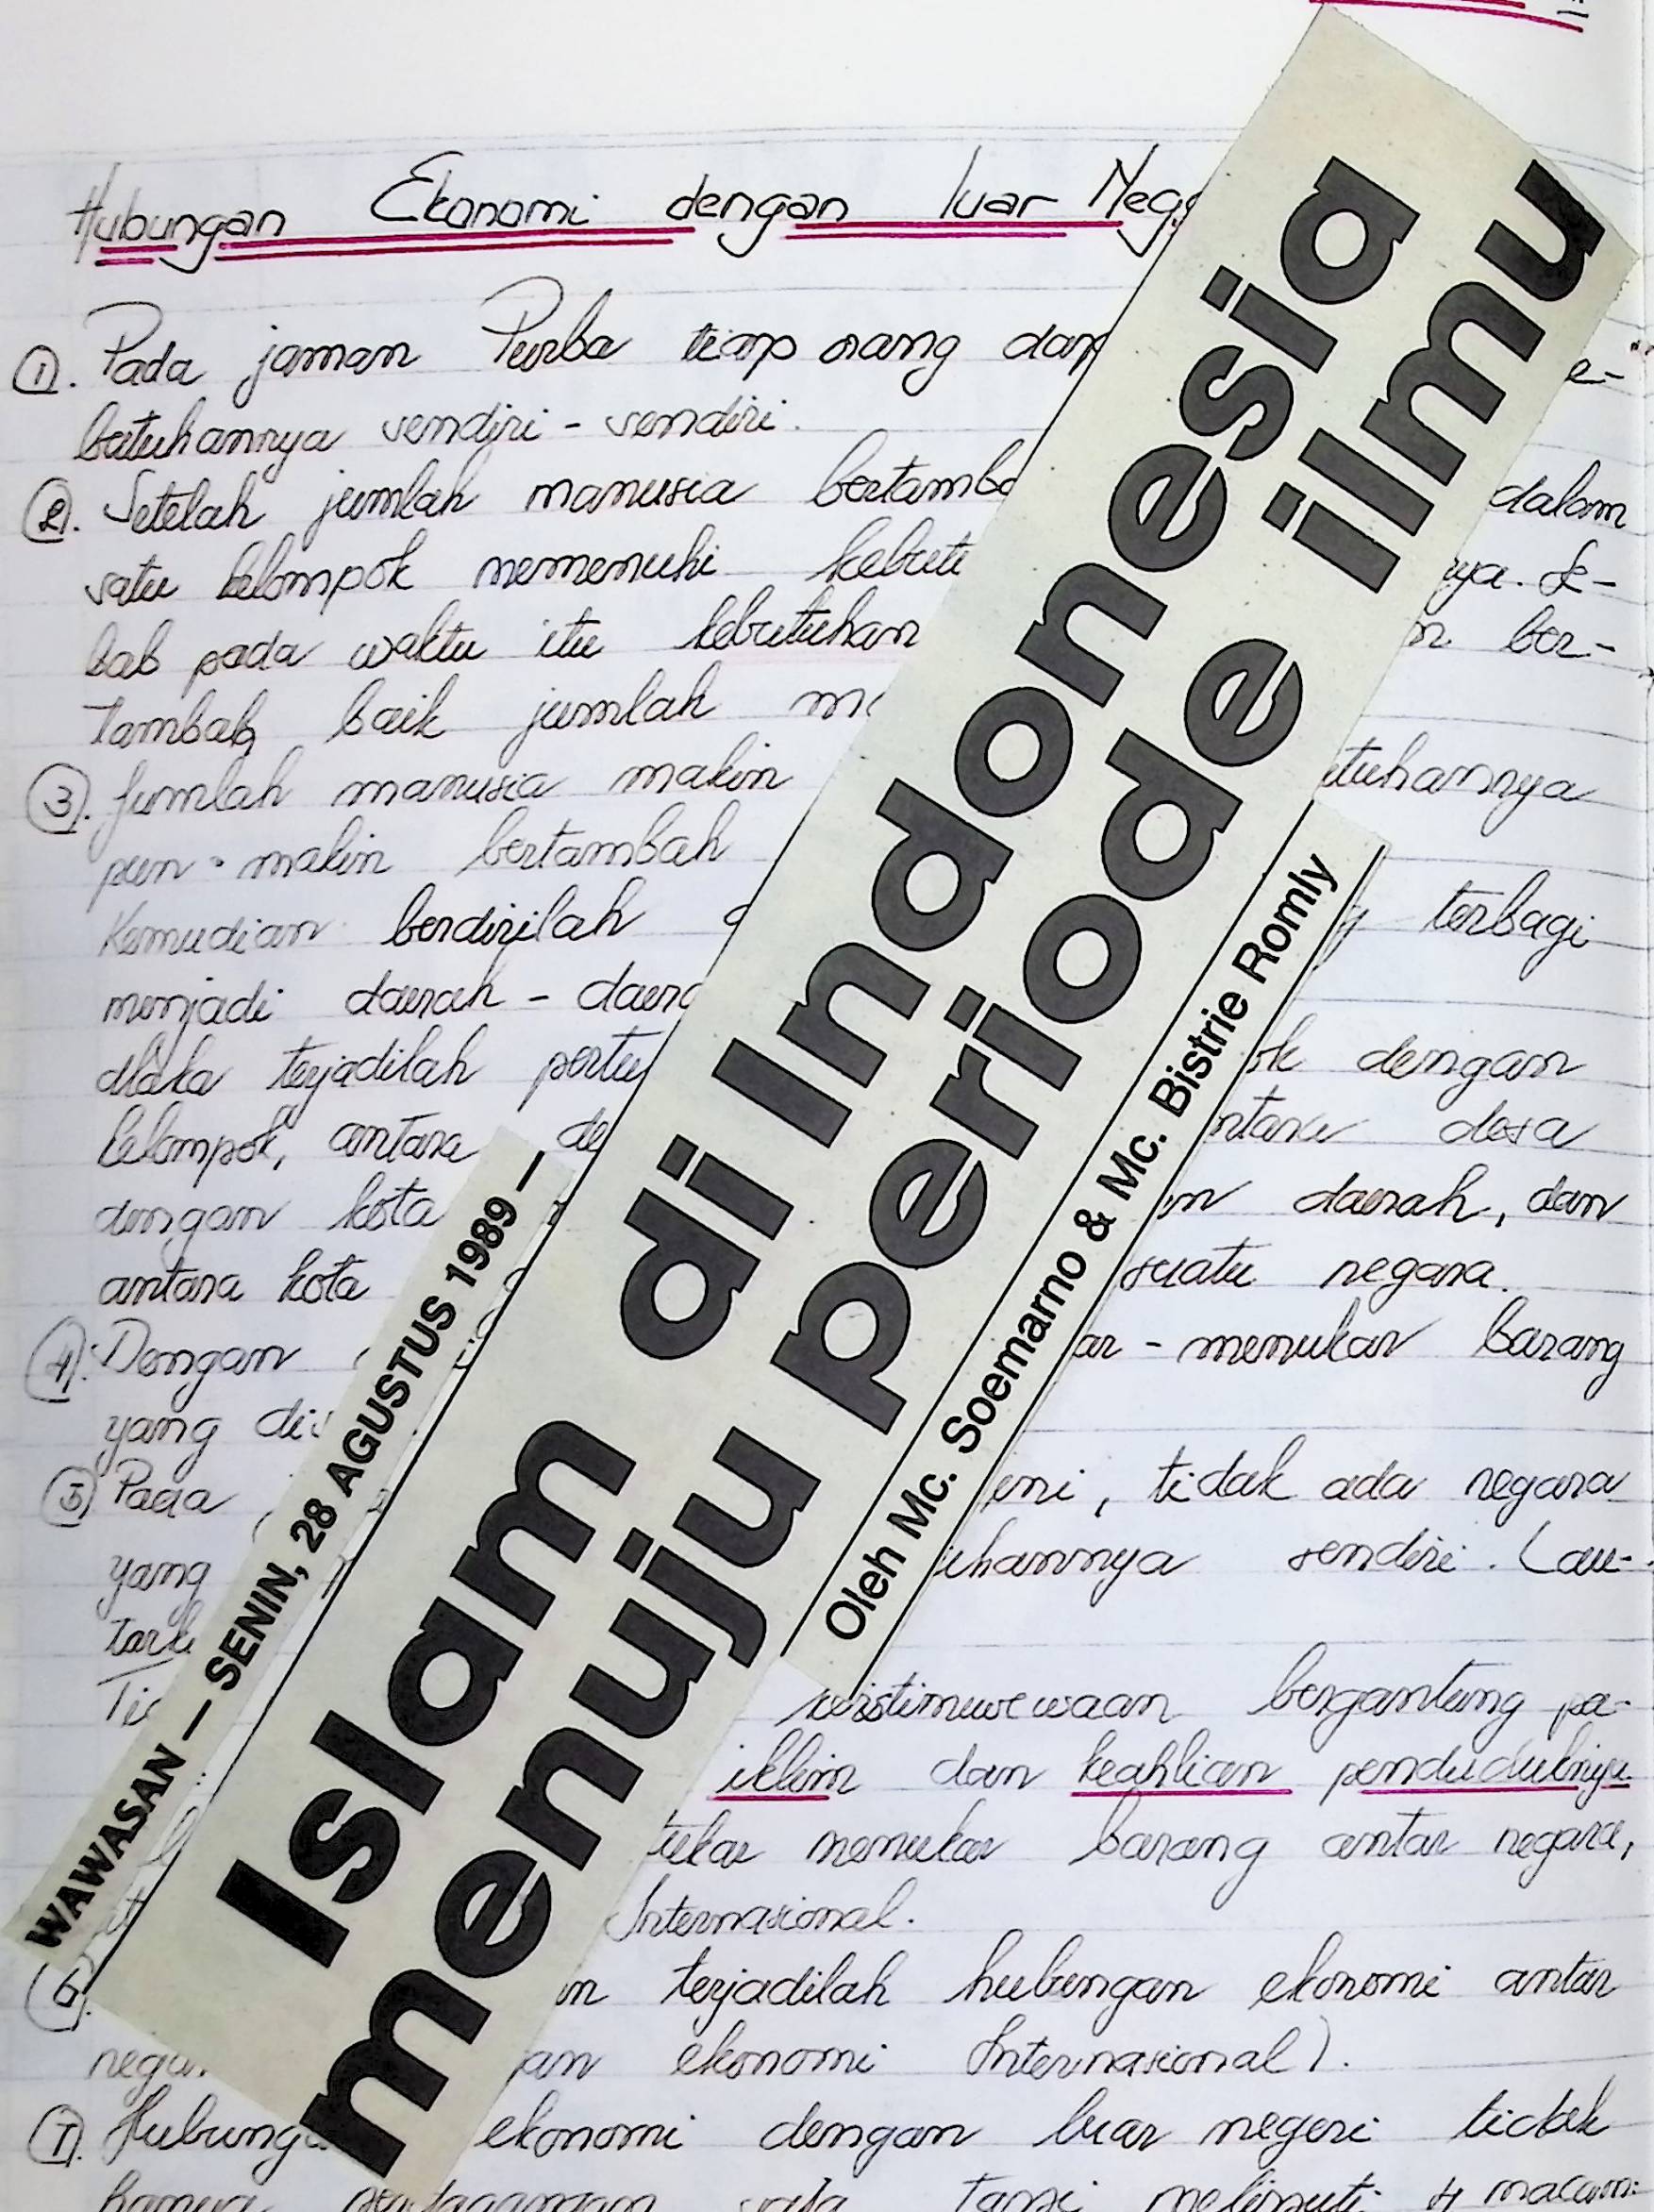 Hubungan Ekonomi dengan luar Neg
1. Pada jaman Purba tiap orang dap e-
butuhannya sendiri - sendiri.
2. Setelah jumlah manusia bertamba dalam
satu kelompok memenuhi kebutu nya. Se-
bab pada waktu itu kebutuhan n ber-
tambah baik jumlah m
3. Jumlah manusia makin utuhannya
pun makin bertambah
Kemudian berdirilah g terbagi
menjadi daerah - daera
Maka terjadilah pertu ok dengan
kelompok, antara de ntara desa
dengan kota n daerah, dan
antara kota suatu negara.
4. Dengan ar - menukar barang
yang di
5. Pada emi, tidak ada negara
yang uhannya sendiri. (au-
tark
Tid keistimewewaan bergantung pa-
iklim dan keahlian penduduknya
tukar menukar barang antar negara,
Internasional.
6. n terjadilah hubungan ekonomi antar
nega an ekonomi Internasional).
7. Hubunga ekonomi dengan luar negeri tidak
hanya perdagangan saja tapi meliputi 4 macam:
WAWASAN — SENIN, 28 AGUSTUS 1989 —
Islam di Indonesia
menuju periode ilmu
Oleh Mc. Soemarno & Mc. Bistrie Romly